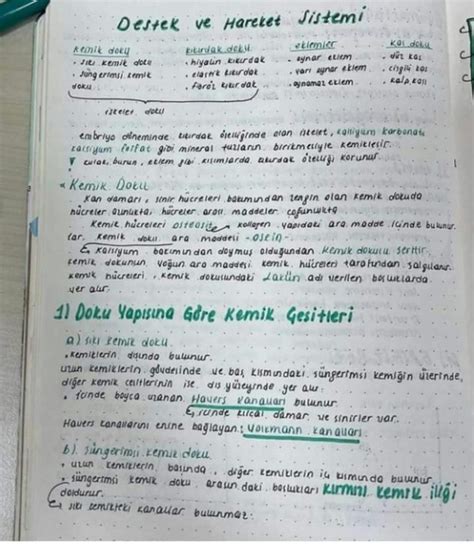 Destek ve Hareket Sistemi
Kemik doku kıkırdak doku eklemler kas doku
. sıkı kemik doku . hiyalin kıkırdak . oynar eklem . düz kas
. süngerimsi kemik . elastik kıkırdak . yarı oynar eklem . çizgili kas
doku . fibröz kıkırdak . oynamaz eklem . kalp kası
iskelet doku
embriyo döneminde kıkırdak özelliğinde olan iskelet, kalsiyum karbonat
kalsiyum fosfat gibi mineral tuzların birikmesiyle kemikleşir.
kulak, burun, eklem gibi kısımlarda kıkırdak özelliği korunur.
Kemik Doku
Kan damarı, sinir hücreleri bakımından zengin olan kemik dokuda
hücreler azınlıkta, hücreler arası maddeler çoğunlukta
Kemik hücreleri osteosit kollagen yapıdaki ara madde içinde bulunur
lar. kemik doku ara maddesi -osein-
kalsiyum bakımından doymuş olduğundan kemik dokulu serttir.
kemik dokunun yoğun ara maddesi kemik hücreleri tarafından salgılanır.
kemik hücreleri, kemik dokusundaki lakün adı verilen boşluklarda
yer alır.
1) Doku Yapısına Göre Kemik Çeşitleri
a) sıkı kemik doku
. kemiklerin dışında bulunur.
uzun kemiklerin gövdesinde ve baş kısmındaki süngerimsi kemiğin üzerinde,
diğer kemik çeşitlerinin ise dış yüzeyinde yer alır.
. içinde boyca uzanan Havers kanalları bulunur.
içinde kılcal damar ve sinirler var.
Havers kanallarını enine bağlayan: Volkmann kanalları
b) süngerimsi kemik doku
. uzun kemiklerin başında, diğer kemiklerin iç kısmında bulunur.
. süngerimsi kemik doku arasındaki boşlukları kırmızı kemik iliği
doldurur.
sıkı kemikteki kanallar bulunmaz.